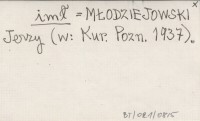 x
iml = MŁODZIEJOWSKI
Jerzy (w: Kur. Pozn. 1937).
BJ/081/0815